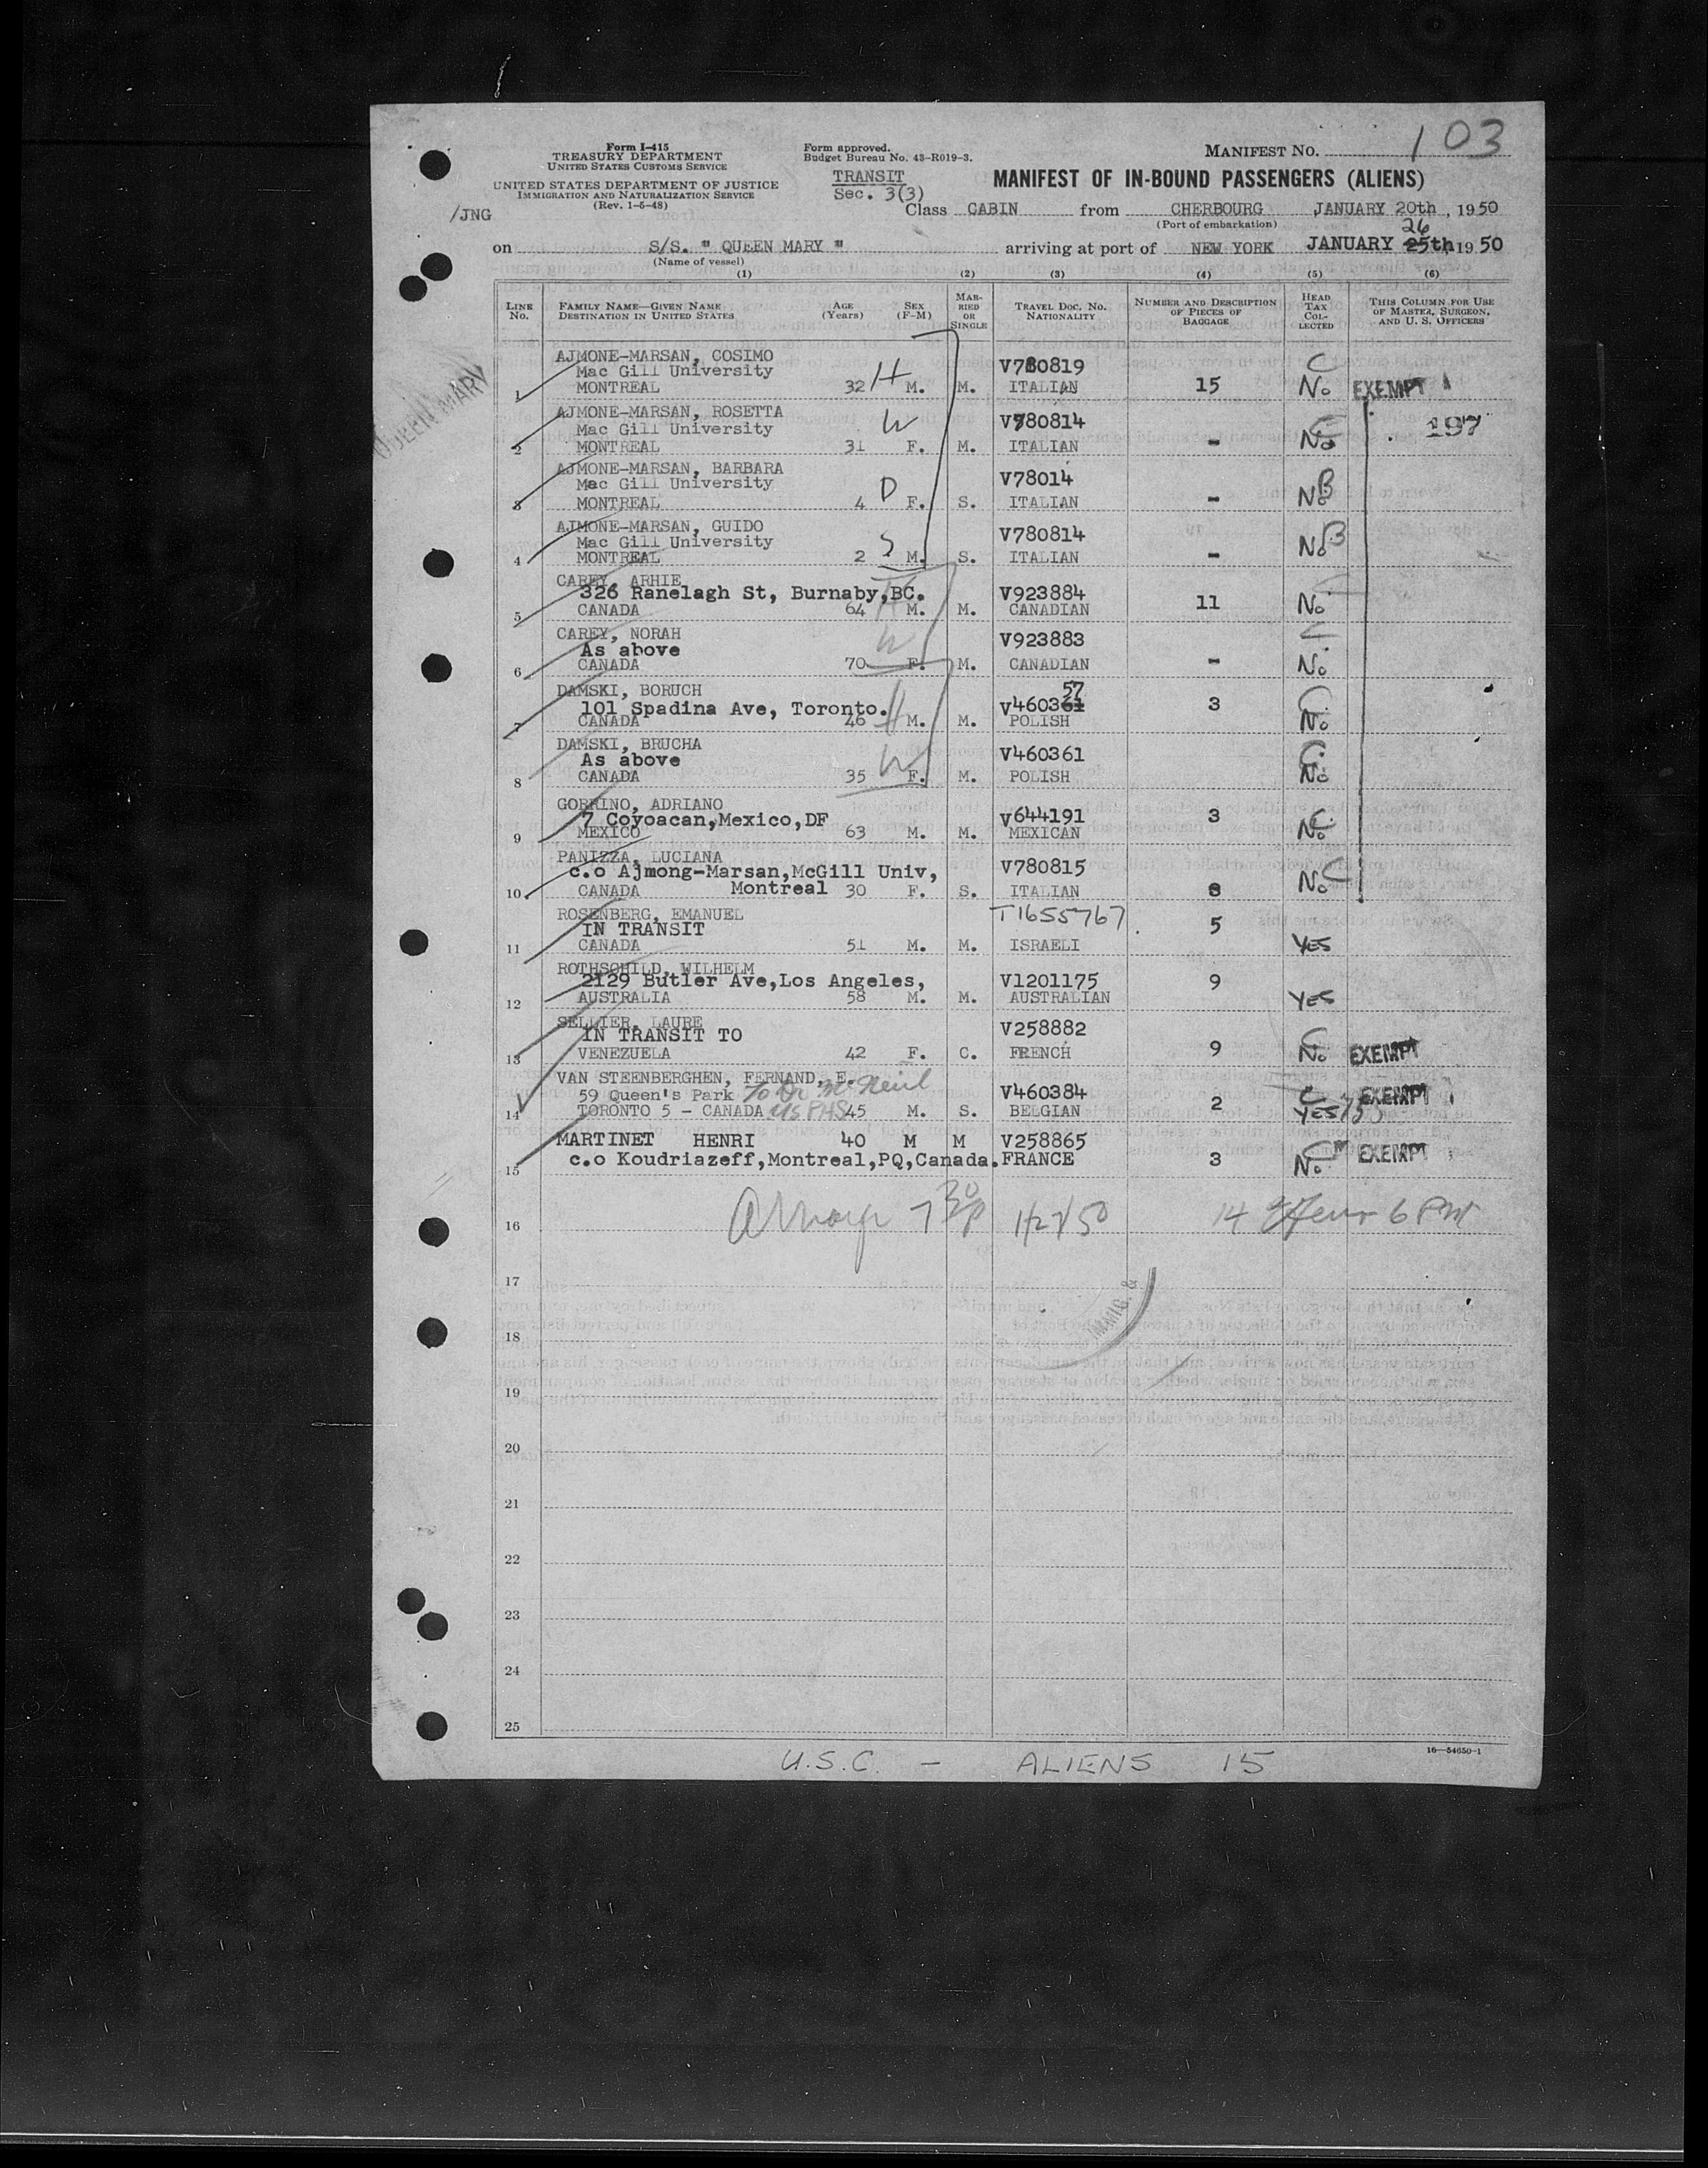 103
Form I-415
TREASURY DEPARTMENT
UNITED STATES CUSTOMS SERVICE
UNITED STATES DEPARTMENT OF JUSTICE
IMMIGRATION AND NATURALIZATION SERVICE
(Rev. 1-5-48)
/JNG
Form approved.
Budget Bureau No. 43-R019-3.
TRANSIT
Sec. 3(3)
MANIFEST NO.
MANIFEST OF IN-BOUND PASSENGERS (ALIENS)
Class CABIN from CHERBOURG JANUARY 20th, 1950
(Port of embarkation)
26
on S/S. " QUEEN MARY " arriving at port of NEW YORK JANUARY 25th, 1950
(Name of vessel)
(1) (2) (3) (4) (5) (6)
LINE NO. FAMILY NAME—GIVEN NAME DESTINATION IN UNITED STATES AGE (Years) SEX (F-M) MARRIED OR SINGLE TRAVEL DOC. NO. NATIONALITY NUMBER AND DESCRIPTION OF PIECES OF BAGGAGE HEAD TAX COLLECTED THIS COLUMN FOR USE OF MASTER, SURGEON, AND U. S. OFFICERS
QUEEN MARY
AJMONE-MARSAN, COSIMO V780819 C
Mac Gill University
1 MONTREAL 32 H M. M. ITALIAN 15 No EXEMPT
AJMONE-MARSAN, ROSETTA W V780814 C 197
Mac Gill University
2 MONTREAL 31 F. M. ITALIAN - No
AJMONE-MARSAN, BARBARA V78014 B
Mac Gill University
3 MONTREAL 4 D F. S. ITALIAN - No
AJMONE-MARSAN, GUIDO V780814 B
Mac Gill University
4 MONTREAL 2 S M. S. ITALIAN - No
CAREY, ARHIE V923884 C
326 Ranelagh St, Burnaby,BC.
5 CANADA 64 M. M. CANADIAN 11 No
CAREY, NORAH W V923883 C
As above
6 CANADA 70 F. M. CANADIAN - No
DAMSKI, BORUCH 57 C
101 Spadina Ave, Toronto. V460361 3
7 CANADA 46 H M. M. POLISH No
DAMSKI, BRUCHA W V460361 C
As above
8 CANADA 35 F. M. POLISH No
GORRINO, ADRIANO V644191 3 C
7 Coyoacan,Mexico,DF
9 MEXICO 63 M. M. MEXICAN No
PANIZZA, LUCIANA V780815 C
c.o Ajmong-Marsan,McGill Univ,
10 CANADA Montreal 30 F. S. ITALIAN 8 No
ROSENBERG, EMANUEL T1655767 5
IN TRANSIT
11 CANADA 51 M. M. ISRAELI YES
ROTHSCHILD, WILHELM V1201175 9
2129 Butler Ave,Los Angeles,
12 AUSTRALIA 58 M. M. AUSTRALIAN YES
SELLIER, LAURE V258882 C
IN TRANSIT TO
13 VENEZUELA 42 F. C. FRENCH 9 No EXEMPT
VAN STEENBERGHEN, FERNAND, E. V460384 C EXEMPT
59 Queen's Park To Dr McNeil
14 TORONTO 5 - CANADA US PHS 45 M. S. BELGIAN 2 YES
MARTINET HENRI 40 M M V258865 C EXEMPT
15 c.o Koudriazeff,Montreal,PQ,Canada. FRANCE 3 No
16 7 30 P 1/27/50 14 6 PM
17
IMMIG. &
18
19
20
21
22
23
24
25
16—54650-1
U.S.C. - ALIENS 15